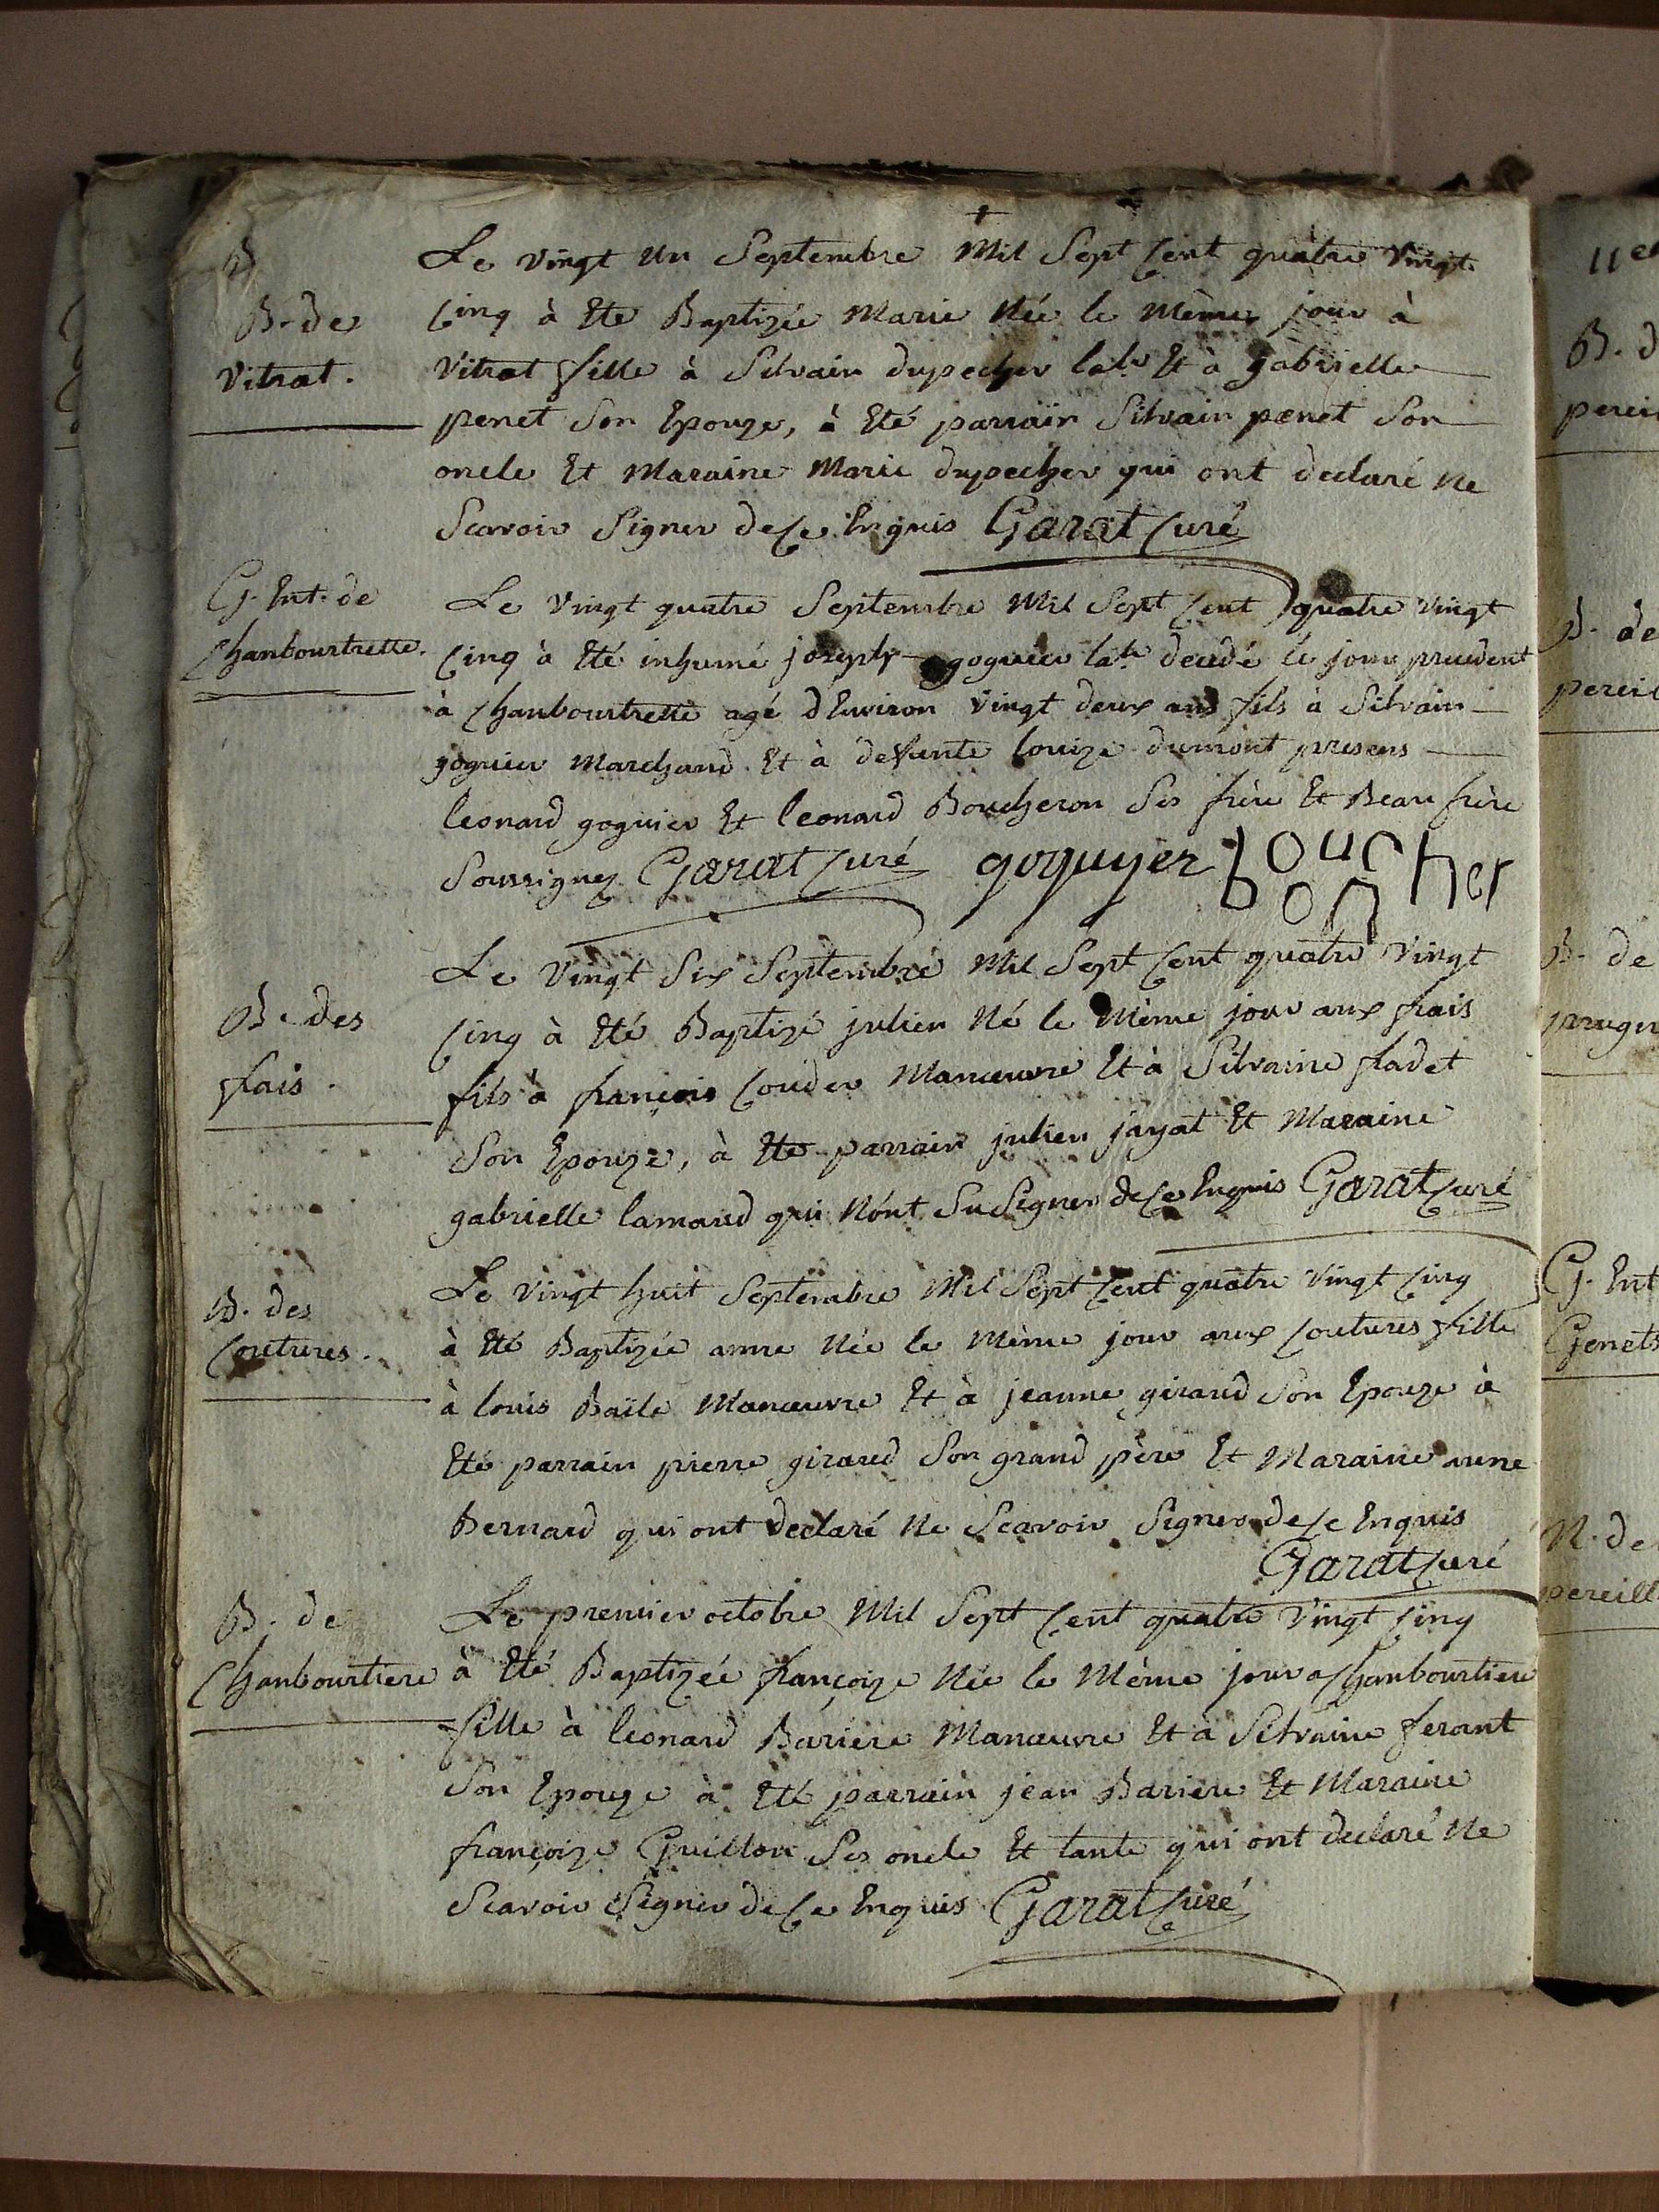 Le vingt un Septembre Mil Sept Cent quatre vingt
B
B. de
Vitrat.
Cinq à Eté Baptizée Marie Née le Même jour à
Vitrat fille à Silvain dupecher labr Et à gabrielle
penet Son Epouze, à Eté parrain Silvain penet Son
oncle Et Maraine Marie dupecher qui ont declaré Ne
Scavoir Signer de Ce Enquis Garat Curé
G. Ent. de
Chanbourtrette.
Le vingt quatre Septembre Mil Sept Cent quatre vingt
Cinq à Eté inhumé joseph goguier labr decedé le jour precedent
à Chanbourtrette agé dEnviron vingt deux ans fils à Silvain
goguier Marchand Et à defunte louize dumont presens
leonard goguier Et leonard Boucheron Ses frère Et Beau frère
Soussignez Garat Curé goguyer boucher
bon
B. des
fais.
Le vingt Six Septembre Mil Sept Cent quatre vingt
Cinq à Eté Baptizé julien Né le Même jour aux frais
fils à françois Couder Manœuvre Et à Silvaine fladet
Son Epouze, à Eté parrain julien jayat Et Maraine
gabrielle lamaud qui Nónt Su Signer de Ce Enquis Garat Curé
B. des
Coutures.
Le vingt huit Septembre Mil Sept Cent quatre vingt Cinq
à Eté Baptizée anne Née le Même jour aux Coutures fille
à louis Baile Manœuvre Et à jeanne giraud Son Epouze à
Eté parrain pierre giraud Son grand père Et Maraine anne
Bernard qui ont declaré Ne Scavoir Signer de Ce Enquis
Garat Curé
B. de
Chanbourtiere
Le premier octobre Mil Sept Cent quatre Vingt Cinq
à Eté Baptizée françoize Née le Même jour a Chanbourtiere
fille à leonard Bariere Manœuvre Et à Silvaine ferant
Son Epouze à Eté parrain jean Bariere Et Maraine
françoize Guillon Ses oncle Et tante qui ont declaré Ne
Scavoir Signer de Ce Enquis Garat Curé
B. d
B. de
B. de
G. Ent
Genets
N. de
pereill